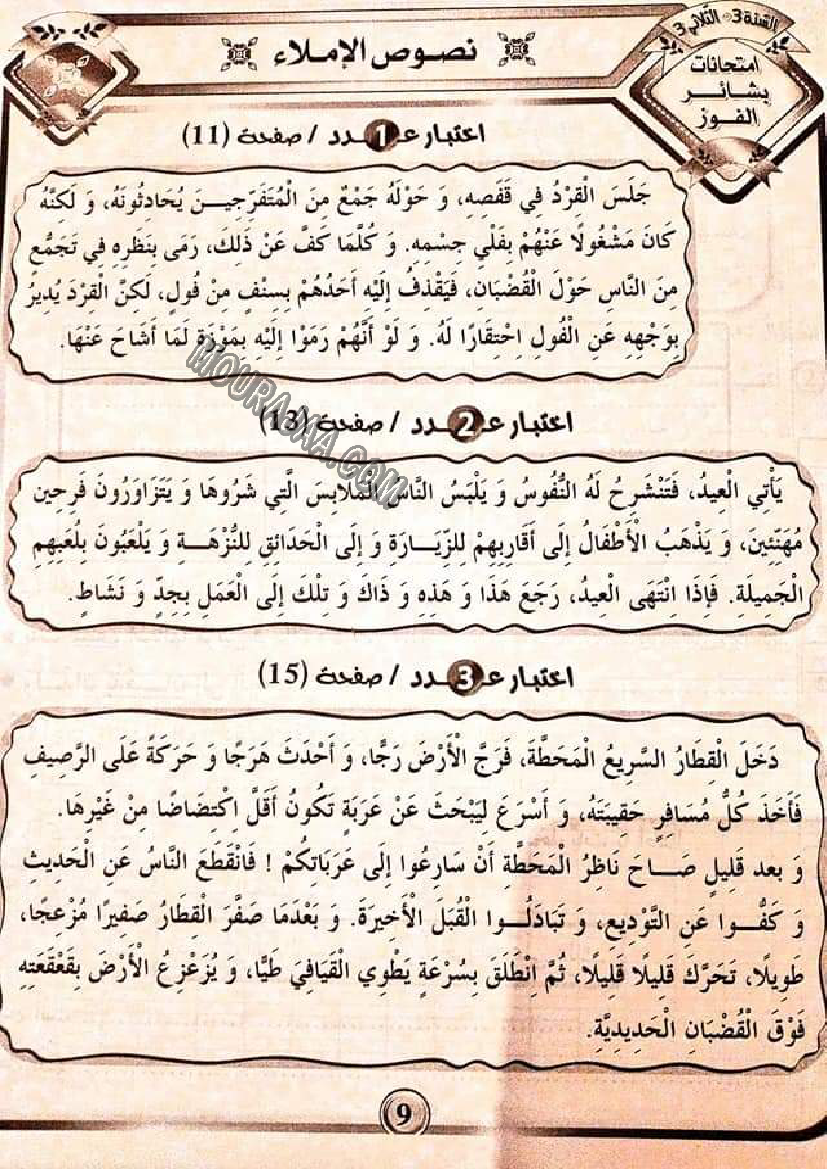 السّنة 3 - الثّلاثي 3
امتحانات
بشائر
الفوز
نصوص الإملاء
اختبار عـ1ـدد / صفحة (11)
جَلَسَ الْقِرْدُ فِي قَفَصِهِ، وَ حَوْلَهُ جَمْعٌ مِنَ الْمُتَفَرِّجِيـنَ يُحَادِثُونَهُ، وَ لَكِنَّهُ
كَانَ مَشْغُولًا عَنْهُمْ بِفَلْيِ جِسْمِهِ. وَ كُلَّمَا كَفَّ عَنْ ذَلِكَ، رَمَى بِنَظَرِهِ فِي تَجَمُّعٍ
مِنَ النَّاسِ حَوْلَ الْقُضْبَانِ، فَيَقْذِفُ إِلَيْهِ أَحَدُهُمْ بِسِنْفٍ مِنْ فُولٍ، لَكِنَّ الْقِرْدَ يُدِيرُ
بِوَجْهِهِ عَنِ الْفُولِ اِحْتِقَارًا لَهُ. وَ لَوْ أَنَّهُمْ رَمَوْا إِلَيْهِ بِمَوْزَةٍ لَمَا أَشَاحَ عَنْهَا.
MOURAJAA.COM
اختبار عـ2ـدد / صفحة (13)
يَأْتِي الْعِيدُ، فَتَنْشَرِحُ لَهُ النُّفُوسُ وَ يَلْبَسُ النَّاسُ الْمَلَابِسَ الَّتِي شَرُوهَا وَ يَتَزَاوَرُونَ فَرِحِين
مُهَنِّئِينَ، وَ يَذْهَبُ الْأَطْفَالُ إِلَى أَقَارِبِهِمْ لِلزِّيَـارَةِ وَ إِلَى الْحَدَائِقِ لِلنُّزْهَـةِ وَ يَلْعَبُونَ بِلُعَبِهِم
الْجَمِيلَةِ. فَإِذَا اِنْتَهَى الْعِيدُ، رَجَعَ هَذَا وَ هَذِهِ وَ ذَاكَ وَ تِلْكَ إِلَى الْعَمَلِ بِجِدٍّ وَ نَشَاطٍ.
اختبار عـ3ـدد / صفحة (15)
دَخَلَ الْقِطَارُ السَّرِيعُ الْمَحَطَّةَ، فَرَجَّ الْأَرْضَ رَجًّا، وَ أَحْدَثَ هَرَجًا وَ حَرَكَةً عَلَى الرَّصِيفِ
فَأَخَذَ كُلُّ مُسَافِرٍ حَقِيبَتَهُ، وَ أَسْرَعَ لِيَبْحَثَ عَنْ عَرَبَةٍ تَكُونُ أَقَلَّ اِكْتِضَاضًا مِنْ غَيْرِهَا.
وَ بعد قليلٍ صَـاحَ نَاظِرُ الْمَحَطَّةِ أَنْ سَارِعُوا إِلَى عَرَبَاتِكُمْ ! فَانْقَطَعَ النَّاسُ عَنِ الْحَدِيثِ
وَ كَفُّـوا عَنِ التَّوْدِيعِ، وَ تَبَادَلُـوا الْقُبَلَ الْأَخِيرَةَ. وَ بَعْدَمَا صَفَّرَ الْقِطَارُ صَفِيرًا مُزْعِجًا،
طَوِيلًا، تَحَرَّكَ قَلِيلًا قَلِيلًا، ثُمَّ اِنْطَلَقَ بِسُرْعَةٍ يَطْوِي الْقَيَافِيَ طَيًّا، وَ يُزَعْزِعُ الْأَرْضَ بِقَعْقَعَتِهِ
فَوْقَ الْقُضْبَانِ الْحَدِيدِيَّةِ.
9